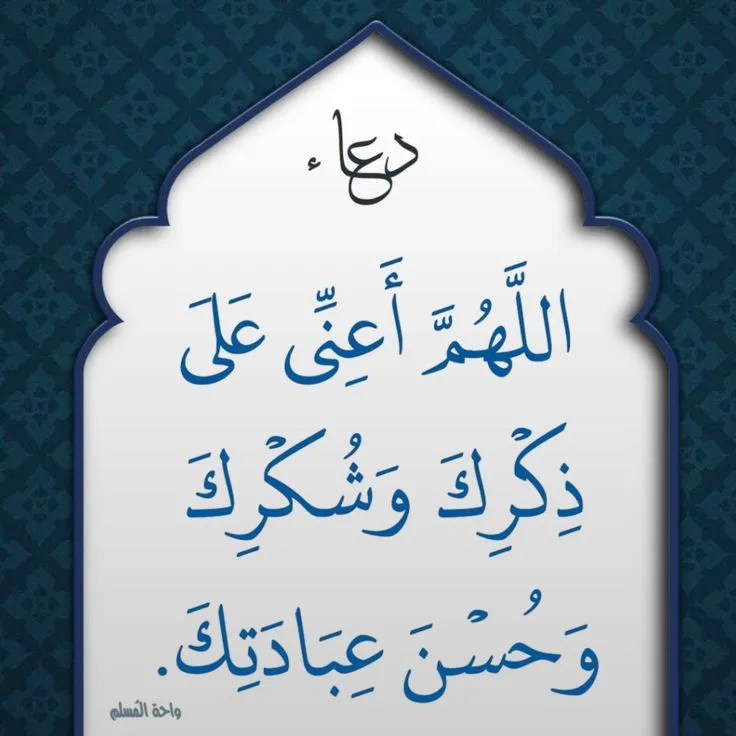 دعاء
اللَّهُمَّ أَعِنِّي عَلَى
ذِكْرِكَ وَشُكْرِكَ
وَحُسْنَ عِبَادَتِكَ.
واحة المسلم